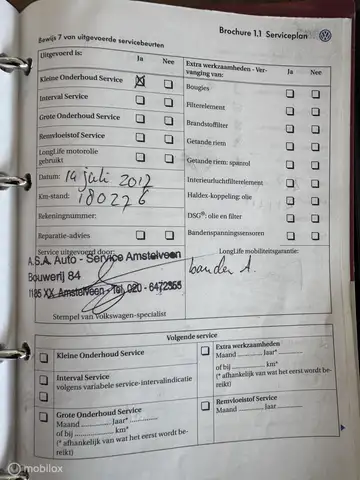 Bewijs 7 van uitgevoerde servicebeurten
Brochure 1.1 Serviceplan
Uitgevoerd is:
Ja Nee
Kleine Onderhoud Service
Interval Service
Grote Onderhoud Service
Remvloeistof Service
LongLife motorolie
gebruikt
Datum: 14 juli 2012
Km-stand: 180276
Rekeningnummer:
Reparatie-advies
Service uitgevoerd door:
A.S.A. Auto - Service Amstelveen
Bouwerij 84
1185 XX Amstelveen - Tel. 020 - 6472355
Stempel van Volkswagen-specialist
Extra werkzaamheden - Ver-
vanging van:
Ja Nee
Bougies
Filterelement
Brandstoffilter
Getande riem
Getande riem: spanrol
Interieurluchtfilterelement
Haldex-koppeling: olie
DSG®: olie en filter
Bandenspanningssensoren
LongLife mobiliteitsgarantie:
Volgende service
Kleine Onderhoud Service
Interval Service
volgens variabele service-intervalindicatie
Grote Onderhoud Service
Maand .............. Jaar*..............
of bij .............. km*
(* afhankelijk van wat het eerst wordt be-
reikt)
Extra werkzaamheden
Maand .............. Jaar*..............
of bij .............. km*
(* afhankelijk van wat het eerst wordt be-
reikt)
Remvloeistof Service
Maand .............. Jaar ..............
mobilox